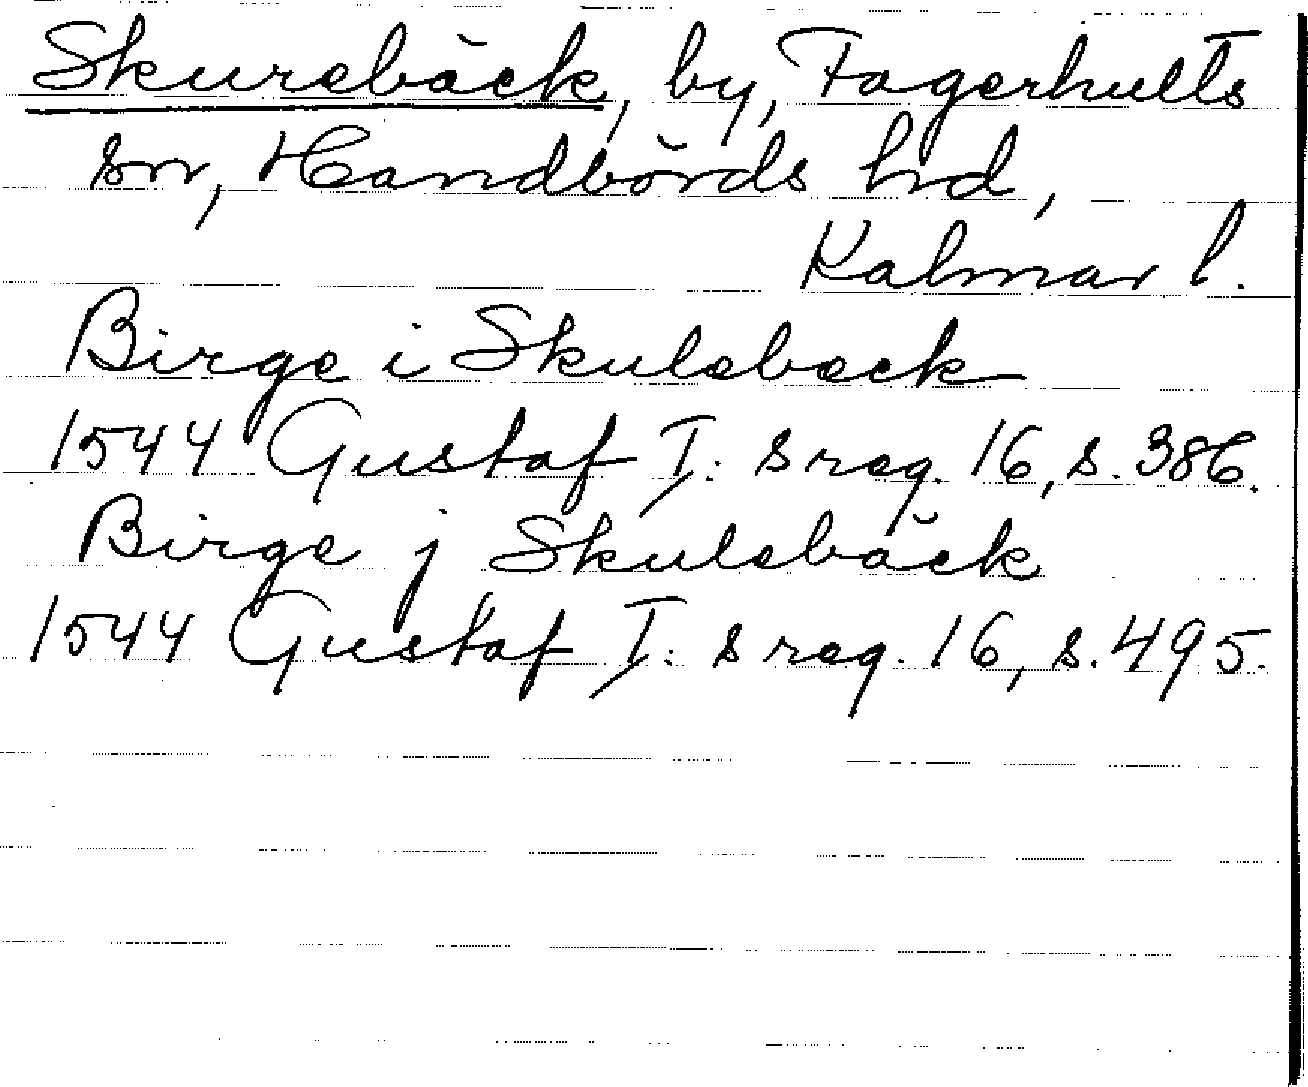 Skurebäck, by, Fagerhults
sn, Handbörds hd,
Kalmar l.
Birge i Skulebeck
1544 Gustaf I:s reg. 16, s. 386.
Birge j Skulebäck
1544 Gustaf I:s reg. 16, s. 495.